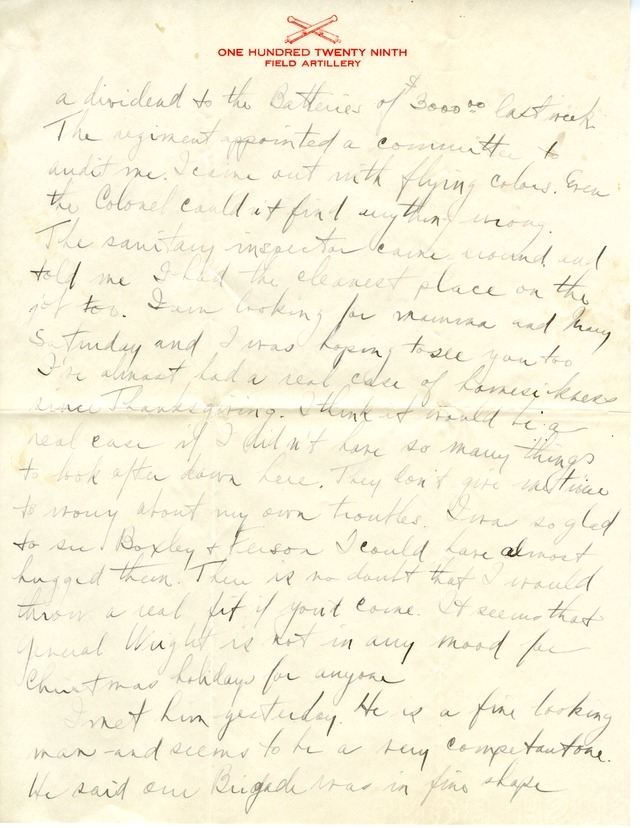 ONE HUNDRED TWENTY NINTH
FIELD ARTILLERY
a dividend to the Batteries of $3000.00 last week.
The regiment appointed a committee to
audit me. I came out with flying colors. Even
the Colonel couldn't find anything wrong.
The sanitary inspector came around and
told me I had the cleanest place on the
too. I am looking for mamma and Mary
Saturday and I was hoping to see you too
I've almost had a real case of homesickness
since Thanksgiving. I think it would be a
real case if I didn't have so many things
to look after down here. They don't give me time
to worry about my own troubles. I was so glad
to see Boxley & I could have almost
hugged them. There is no doubt that I would
throw a real fit if you'd come. It seems that
General Wright is not in any mood for
Christmas holidays for anyone
I met him yesterday. He is a fine looking
man and seems to be a very competant one.
He said our Brigade was in fine shape